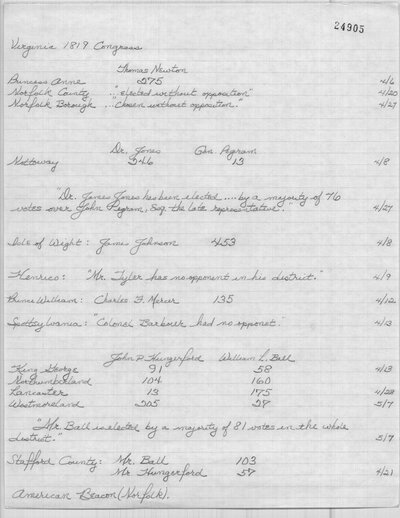 24905
Virginia 1819 Congress
Thomas Newton
Princess Anne 275 4/6
Norfolk County .. "elected without opposition" 4/20
Norfolk Borough .. "Chosen without opposition." 4/27
Dr. Jones Gen Pegram
Nottoway 246 13 4/8
"Dr. James Jones has been elected .... by a majority of 76
votes over John Pegram, Esq. the late representative." 4/27
Isle of Wight: James Johnson 453 4/8
Henrico: "Mr. Tyler has no opponent in his district." 4/9
Prince William: Charles F. Mercer 135 4/12
Spottsylvania: "Colonel Barbour had no opponet." 4/13
John P. Hungerford William L. Ball
King George 91 58 4/13
Northumberland 104 160
Lancaster 13 175 4/28
Westmoreland 205 27 5/7
"Mr. Ball is elected by a majority of 81 votes in the whole
district." 5/7
Stafford County: Mr. Ball 103
Mr. Hungerford 57 4/21
American Beacon (Norfolk).